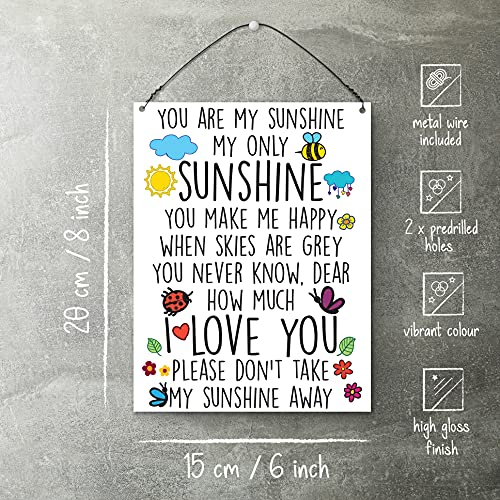 YOU ARE MY SUNSHINE
MY ONLY
SUNSHINE
YOU MAKE ME HAPPY
WHEN SKIES ARE GREY
YOU NEVER KNOW, DEAR
HOW MUCH
I LOVE YOU
PLEASE DON'T TAKE
MY SUNSHINE AWAY
20 cm / 8 inch
15 cm / 6 inch
metal wire
included
2 x predrilled
holes
vibrant colour
high gloss
finish